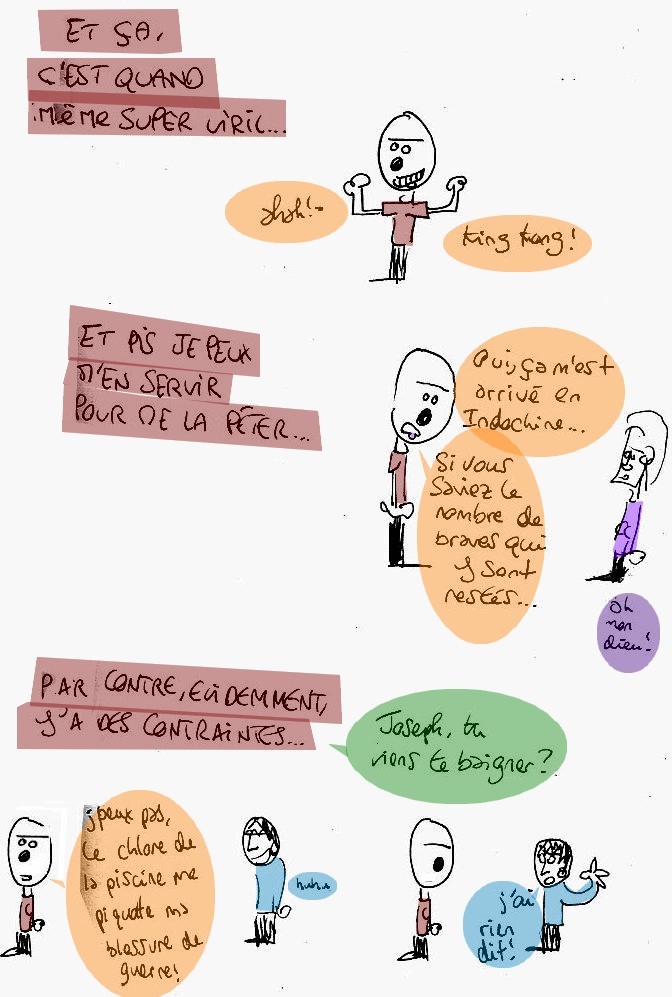 ET ÇA,
C'EST QUAND
MÊME SUPER VIRIL...
ahah!
king kong!
ET PIS JE PEUX
M'EN SERVIR
POUR ME LA PÉTER...
Oui, ça m'est
arrivé en
Indochine...
Si vous
saviez le
nombre de
braves qui
y sont
restés...
oh
mon
dieu!
PAR CONTRE, EVIDEMMENT,
Y'A DES CONTRAINTES...
Joseph, tu
viens te baigner?
j'peux pas,
le chlore de
la piscine me
piquote ma
blessure de
guerre!
huhu
j'ai
rien
dit!